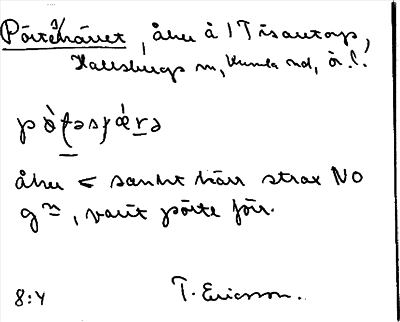 Pörtekärret, åker å 1 T isautorp,
Hallsbergs sn, Kumla hd, Ör. l.
åker < sankt kärr strax NO
gn, varit pörte förr.
8:4 T. Ericsson.